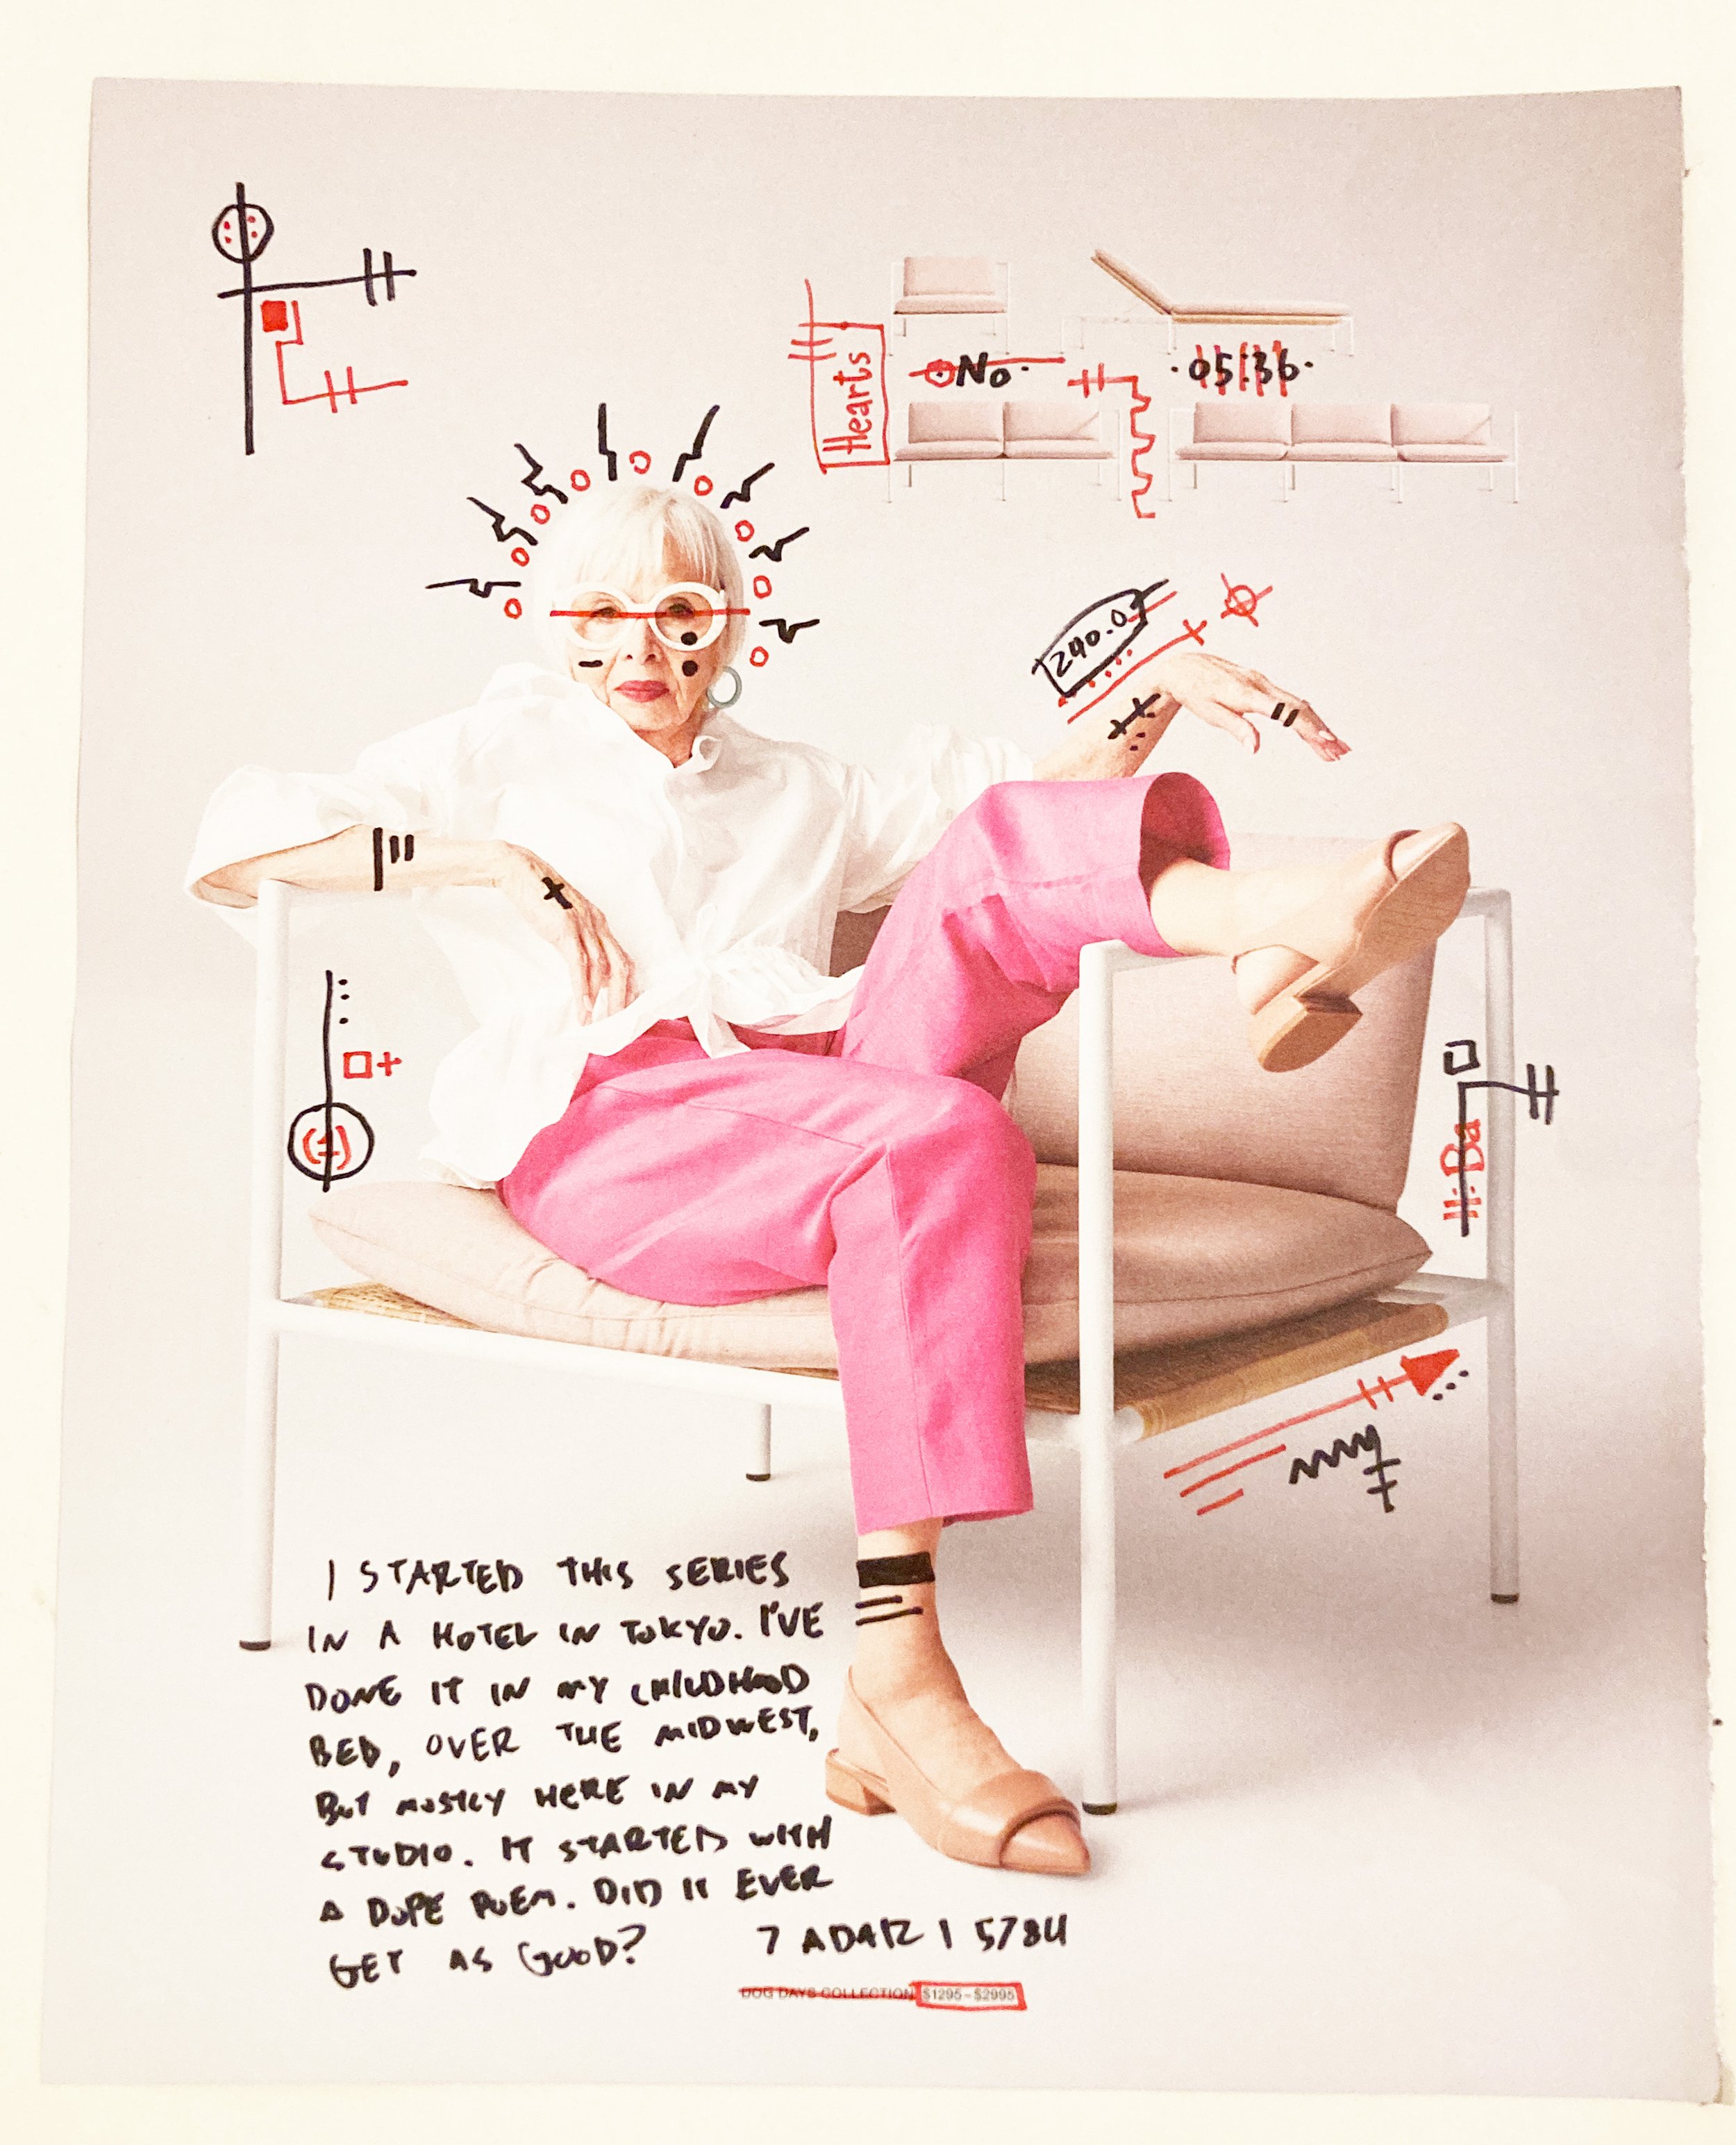 Hearts
No.
.05:36.
240.0
(1)
Hi·Ba
I STARTED THIS SERIES
IN A HOTEL IN TOKYO. I'VE
DONE IT IN MY CHILDHOOD
BED, OVER THE MIDWEST,
BUT MOSTLY HERE IN MY
STUDIO. IT STARTED WITH
A DOPE POEM. DID IT EVER
GET AS GOOD? 7 ADAR I 5784
DOG DAYS COLLECTION $1295–$2995